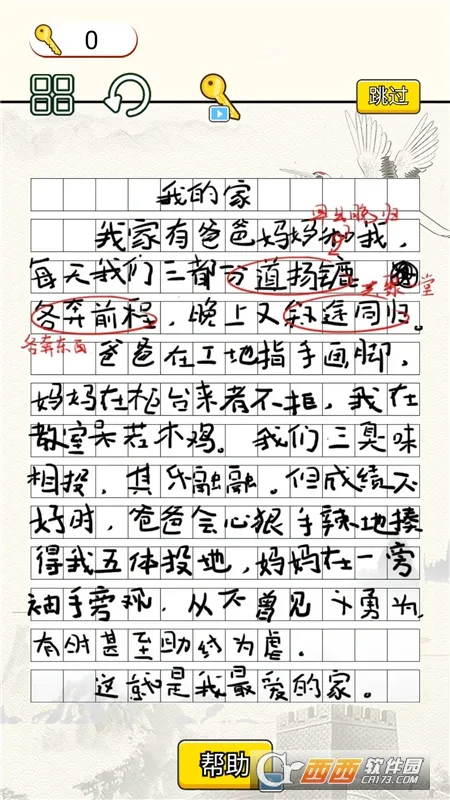 0
跳过
我的家
早出晚归
我家有爸爸妈妈和我，
每天我们三都分道扬镳，
聚一堂
各奔前程，晚上又殊途同归。
各奔东西
爸爸在工地指手画脚，
妈妈在柜台来者不拒，我在
教室呆若木鸡。我们三臭味
相投，其乐融融。但成绩不
好时，爸爸会心狠手辣地揍
得我五体投地，妈妈在一旁
袖手旁观，从不曾见 勇为，
有时甚至助纣为虐。
这就是我最爱的家。
帮助
西西软件园
CR173.COM